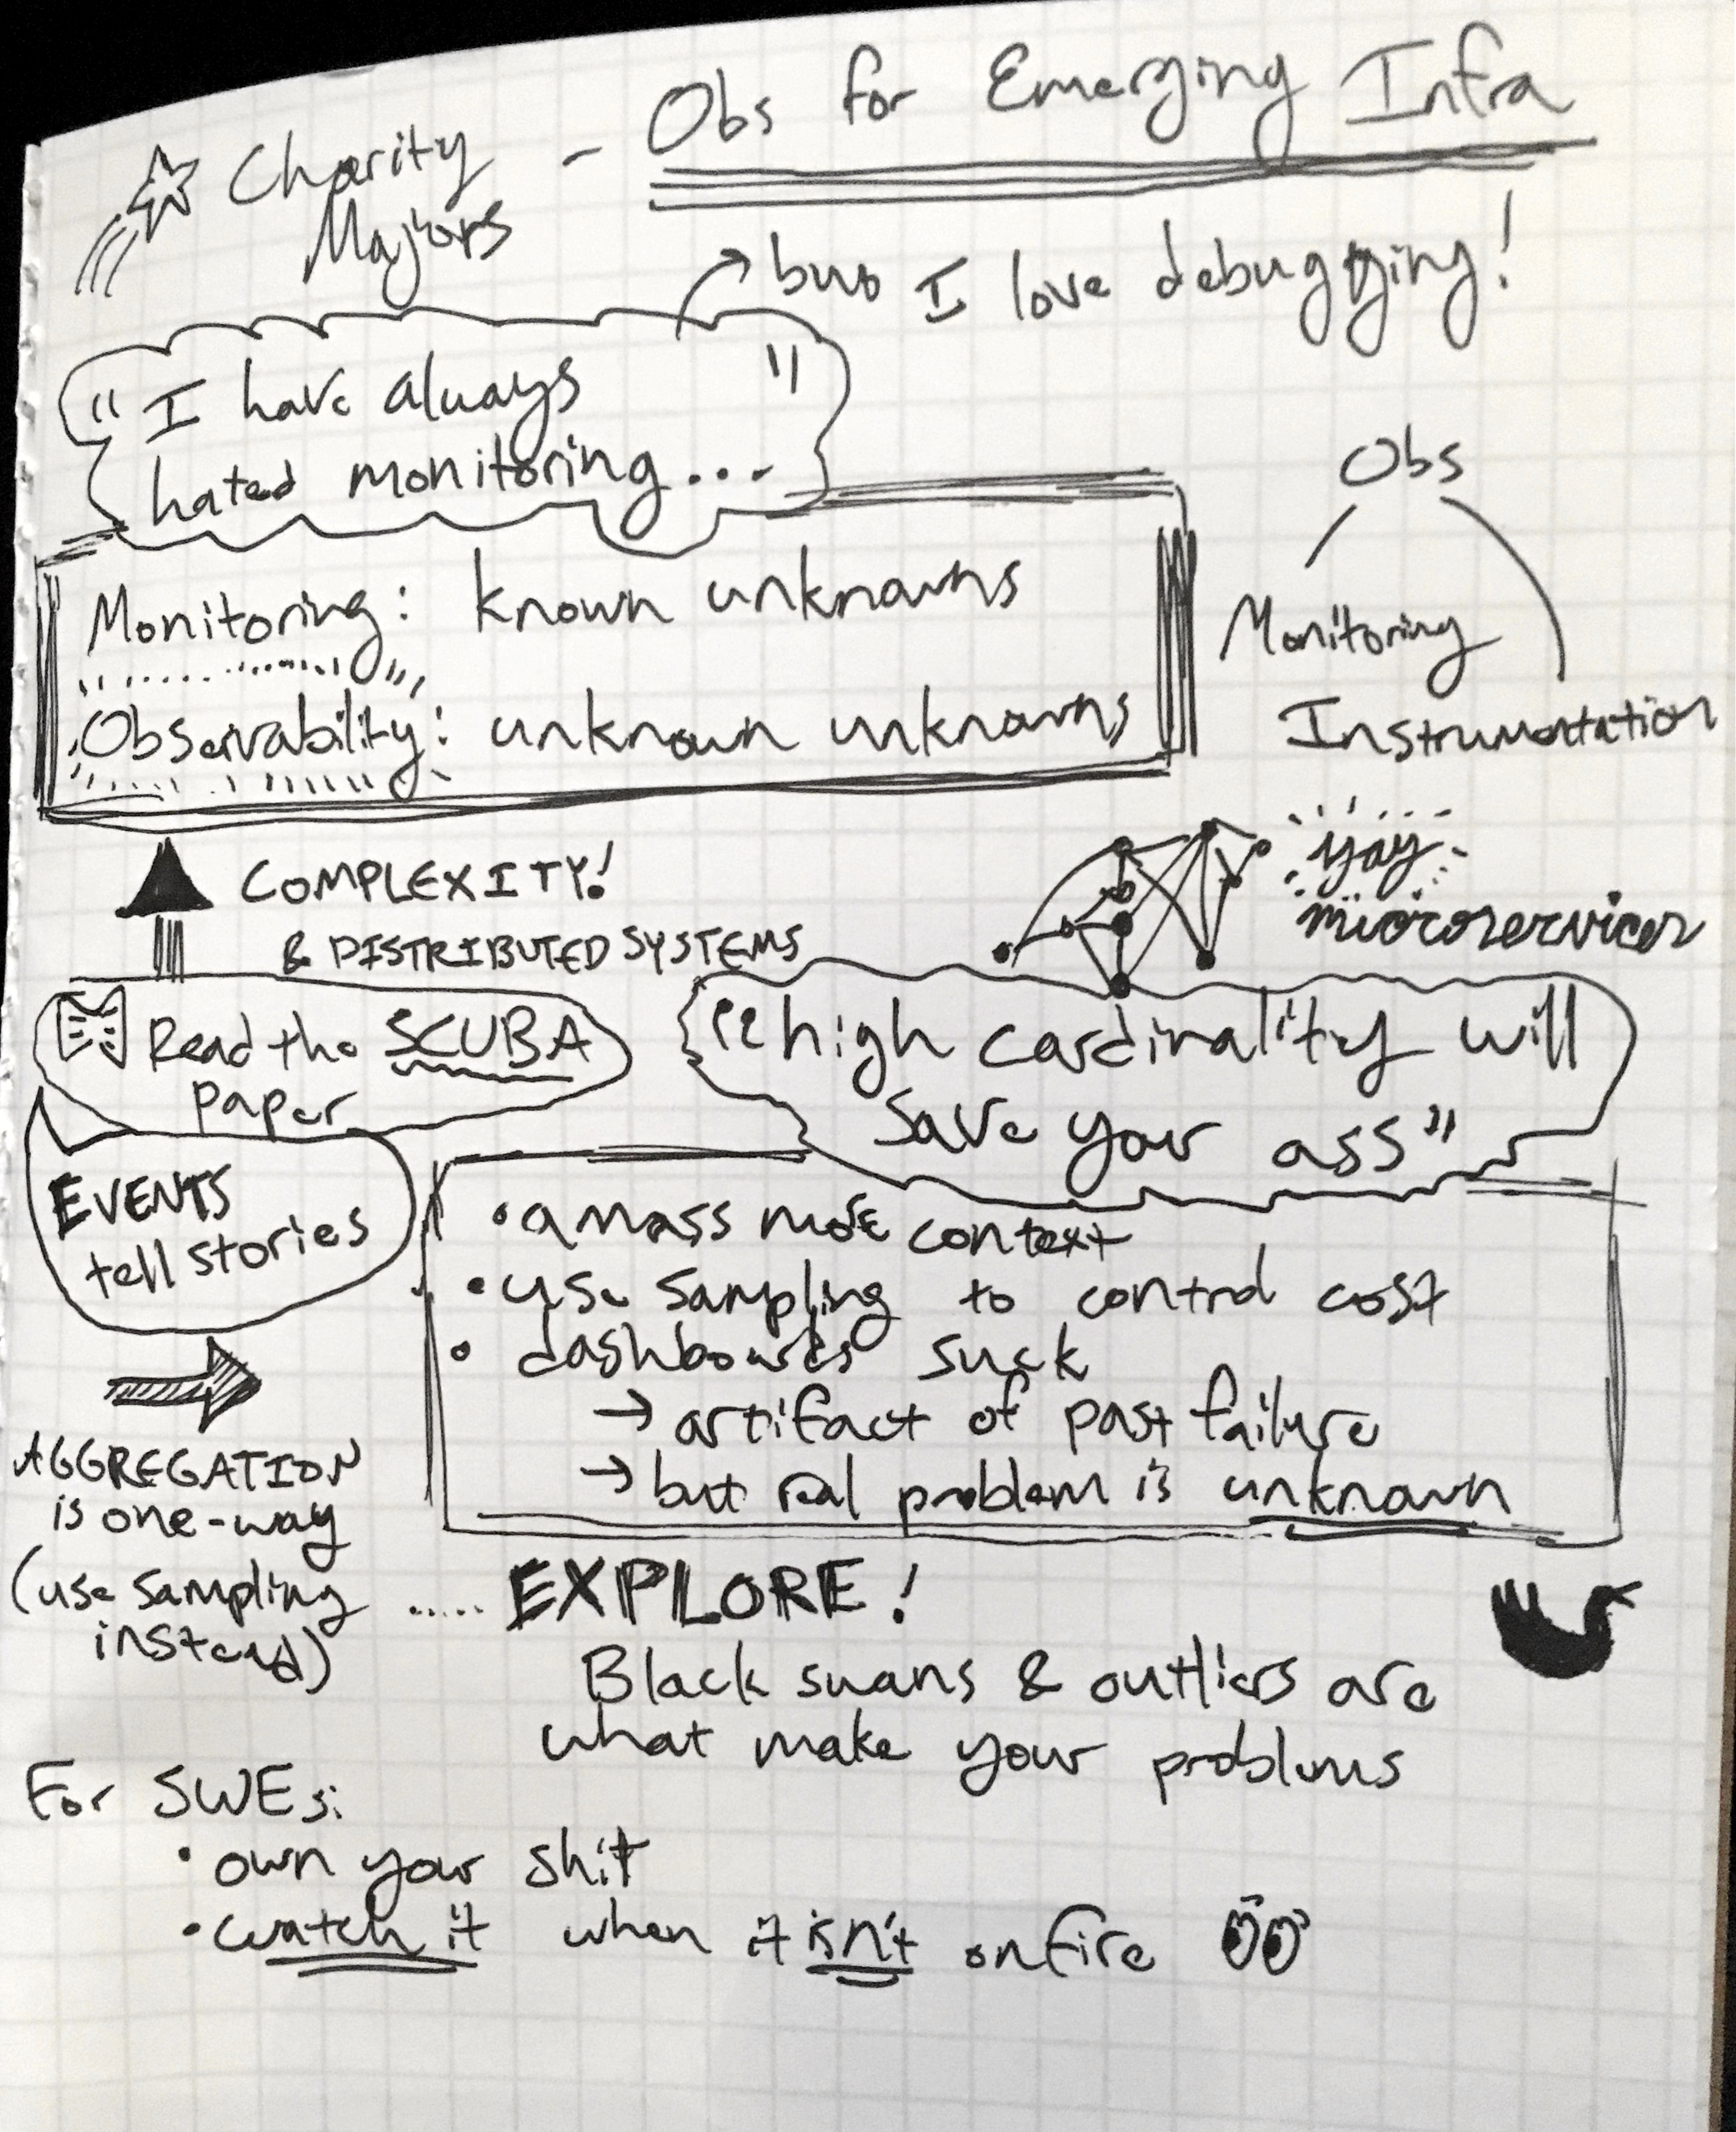 Charity Majors - Obs for Emerging Infra
but I love debugging!
"I have always
hated monitoring..."
Obs
Monitoring
Instrumentation
Monitoring: known unknowns
Observability: unknown unknowns
COMPLEXITY!
& DISTRIBUTED SYSTEMS
yay
microservices
Read the SCUBA
paper
"high cardinality will
save your ass"
EVENTS
tell stories
• amass more context
• use sampling to control cost
• dashboards suck
→ artifact of past failure
→ but real problem is unknown
AGGREGATION
is one-way
(use sampling
instead)
..... EXPLORE!
Black swans & outliers are
what make your problems
For SWEs:
• own your shit
• watch it when it isn't on fire